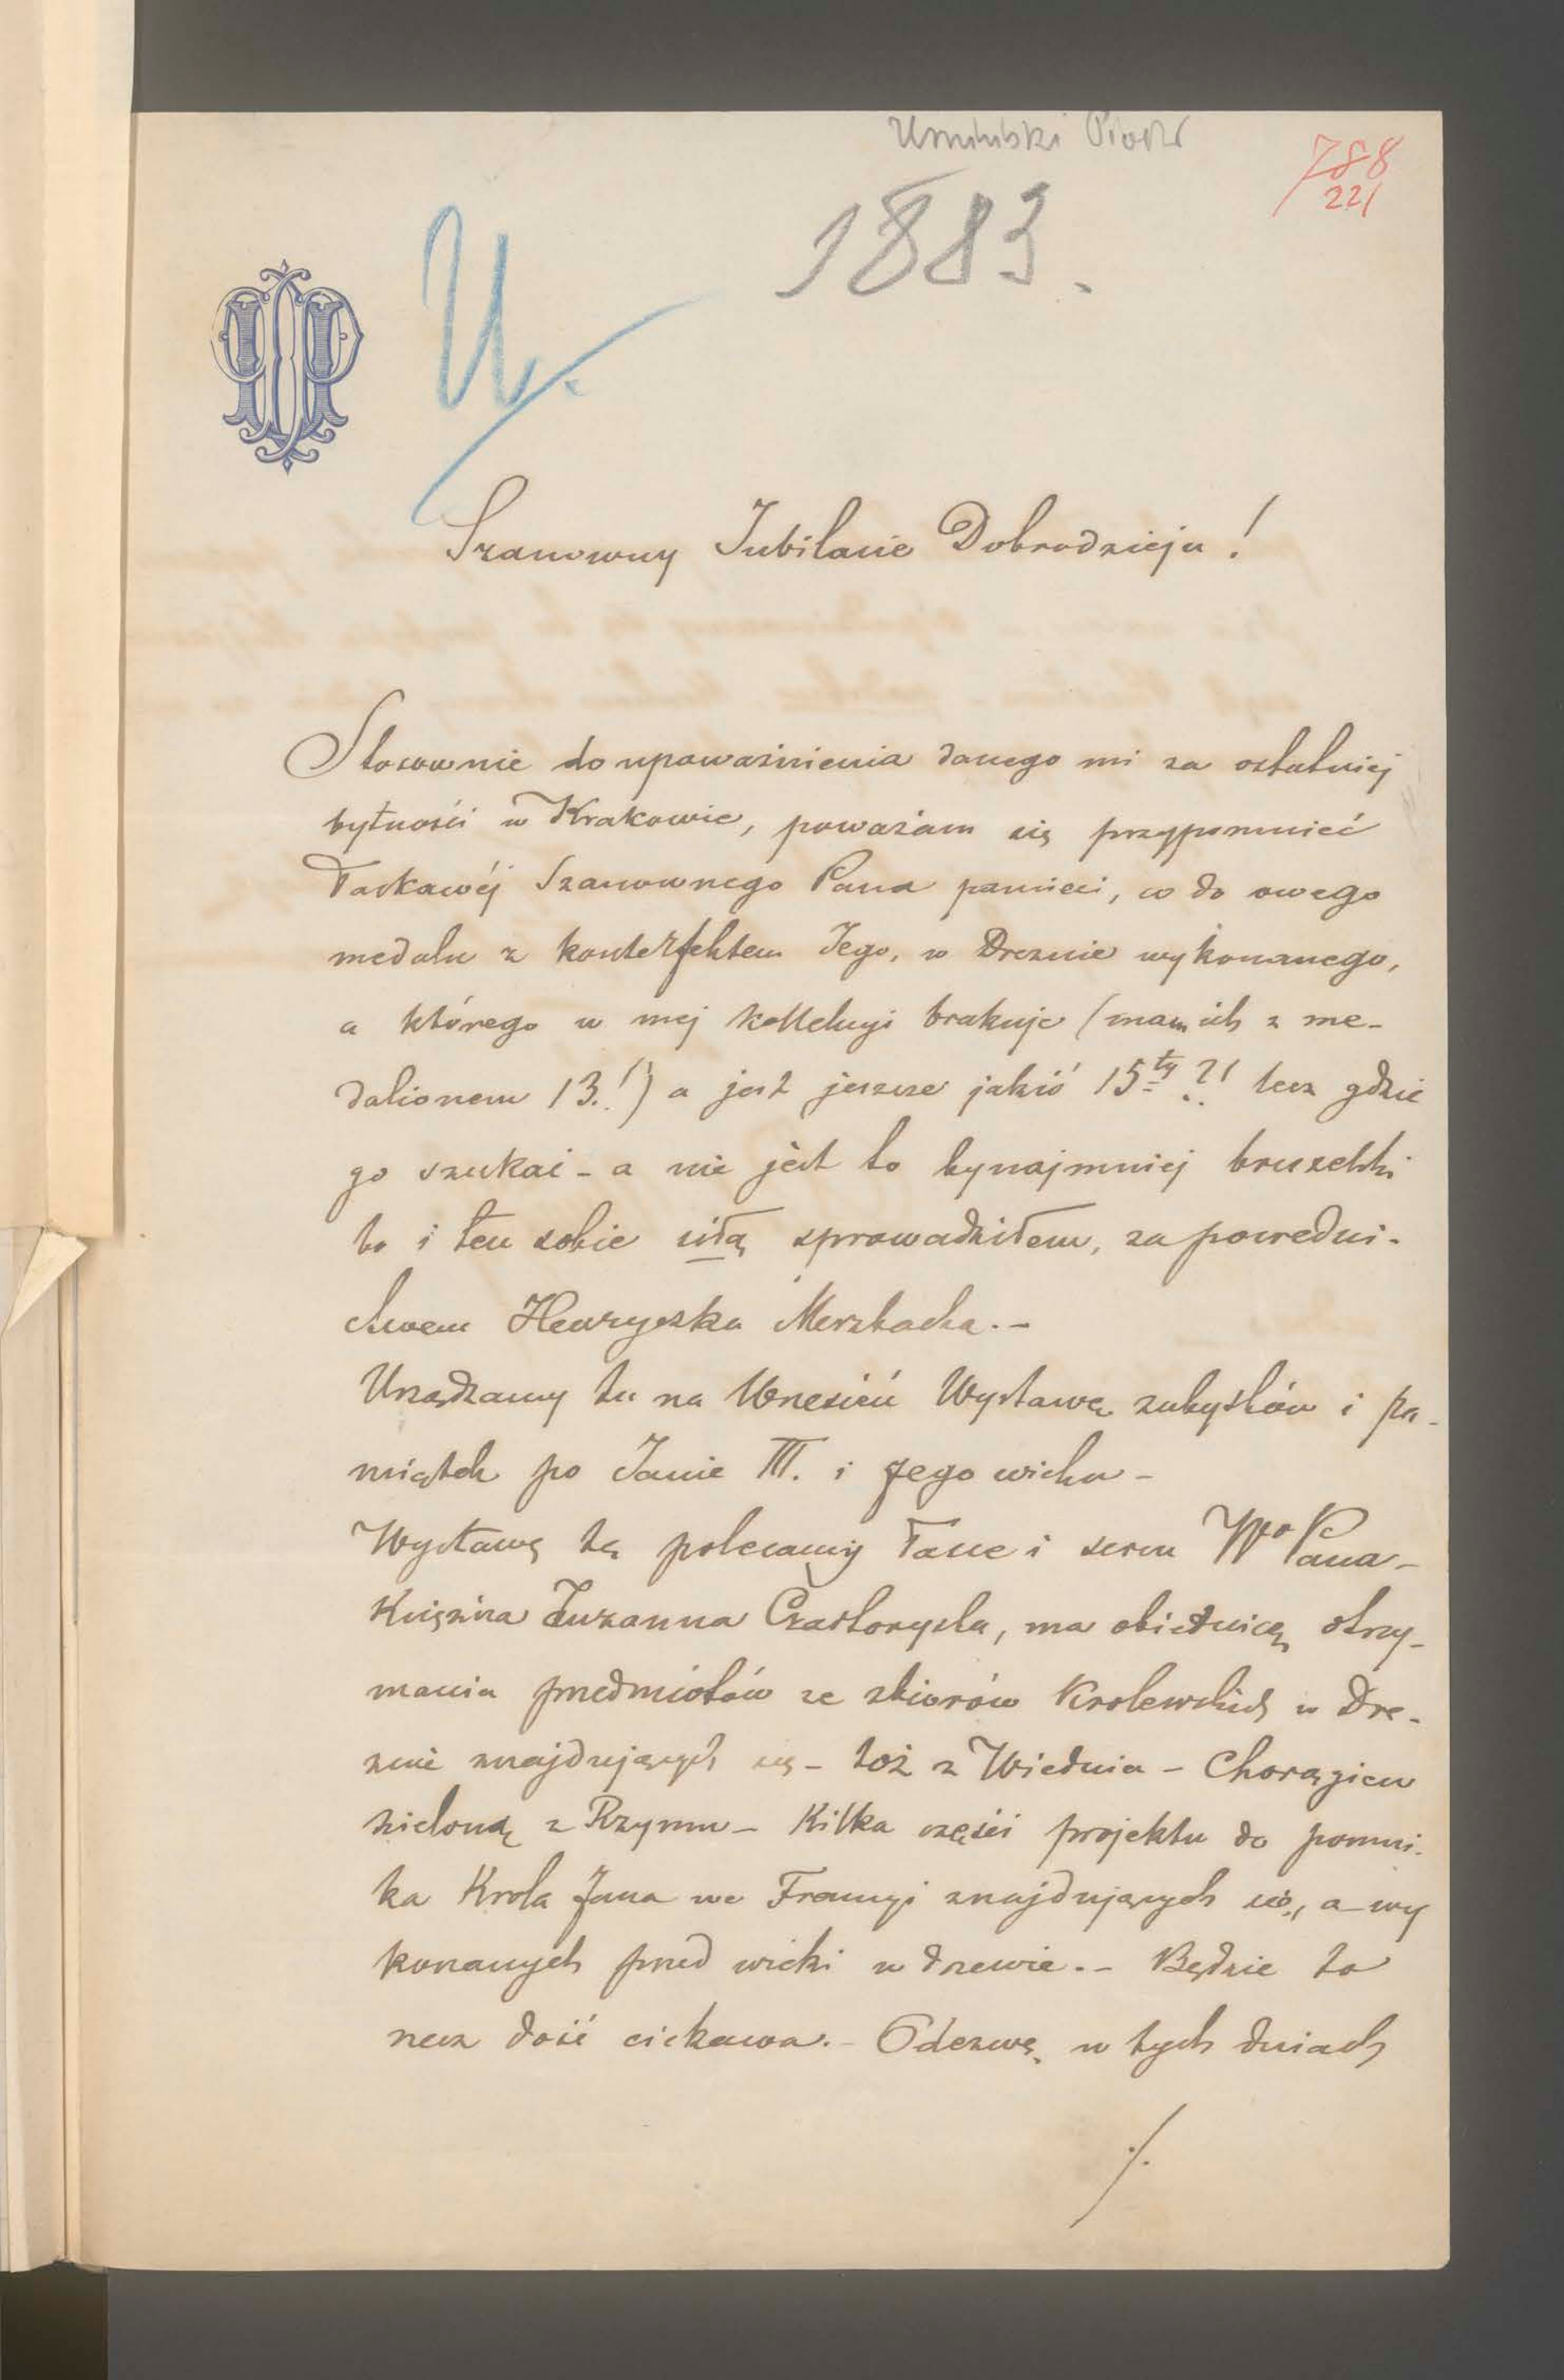 Umiński Piotr
788
221
1883.
U.
Szanowny Jubilacie Dobrodzieju!
Stosownie do upoważnienia danego mi za ostatniej
bytności w Krakowie, poważam się przypomnieć
Łaskawéj Szanownego Pana pamięci, co do owego
medalu z konterfektem Jego, w Dreznie wykonanego,
a którego w mej kollekcyi brakuje (mam ich z me-
dalionem 13.!) a jest jeszcze jakiś 15ty ?! lecz gdzie
go szukać - a nie jest to bynajmniej bruxelski
bo i ten sobie siłą sprowadziłem, za pośredni-
ctwem Henryczka Merzbacha.-
Urządzamy tu na Wrzesień Wystawę zabytków i pa-
miątek po Janie III. i Jego wieku -
Wystawę tę polecamy łasce i sercu Wgo Pana -
Księżna Zuzanna Czartoryska, ma obietnicę otrzy-
mania przedmiotów ze zbiorów Krolewskich w Dre-
znie znajdujących się - toż z Wiednia - Chorągiew
zieloną z Rzymu - Kilka części projektu do pomni-
ka Krola Jana we Francyi znajdujących się, a wy
konanych przed wieki w drzewie.- Będzie to
rzecz dość ciekawa.- Odezwę w tych dniach
./.